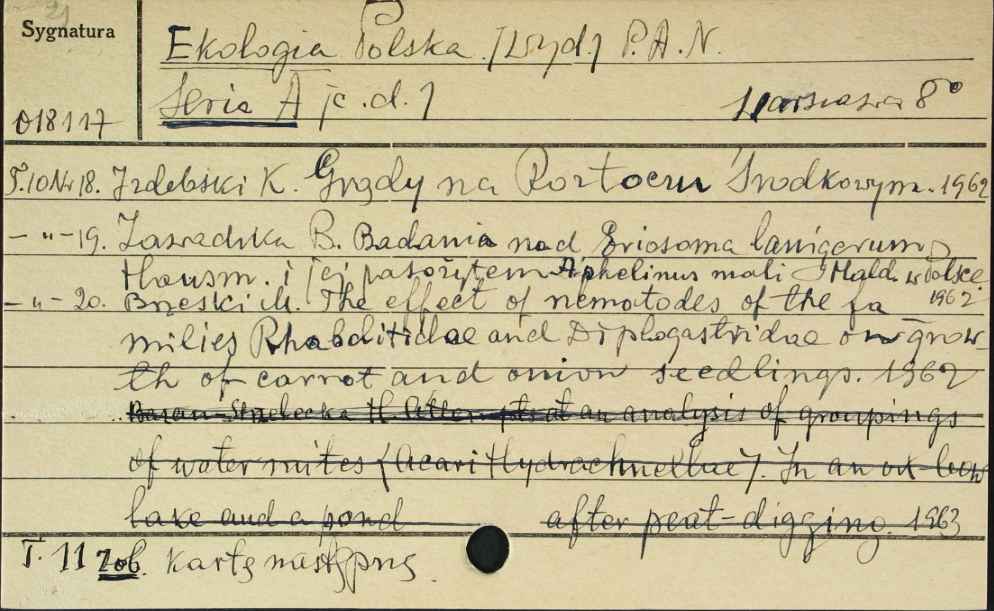 Sygnatura
Ekologia Polska /Wyd/ P.A.N.
Seria A /c.d./ Warszawa 8°
018117
T.10 Nr 18. Izdebski K. Grądy na Roztoczu Środkowym. 1962
-"- 19. Zawadzka B. Badania nad Eriosoma lanigerum
Hausm. i jej pasożytem Aphelinus mali Hald. w Polsce.
1962
-"- 20. Brzeski M. The effect of nematodes of the fa
milies Rhabditidae and Diplogastridae on grow-
th of carrot and onion seedlings. 1962
Baran-Strzelecka H. Attempts at an analysis of groupings
of water mites (Acari Hydrachnellae). In an ox-bow
lake and a pond after peat-digging. 1963
T. 11 zob. kartę następną.